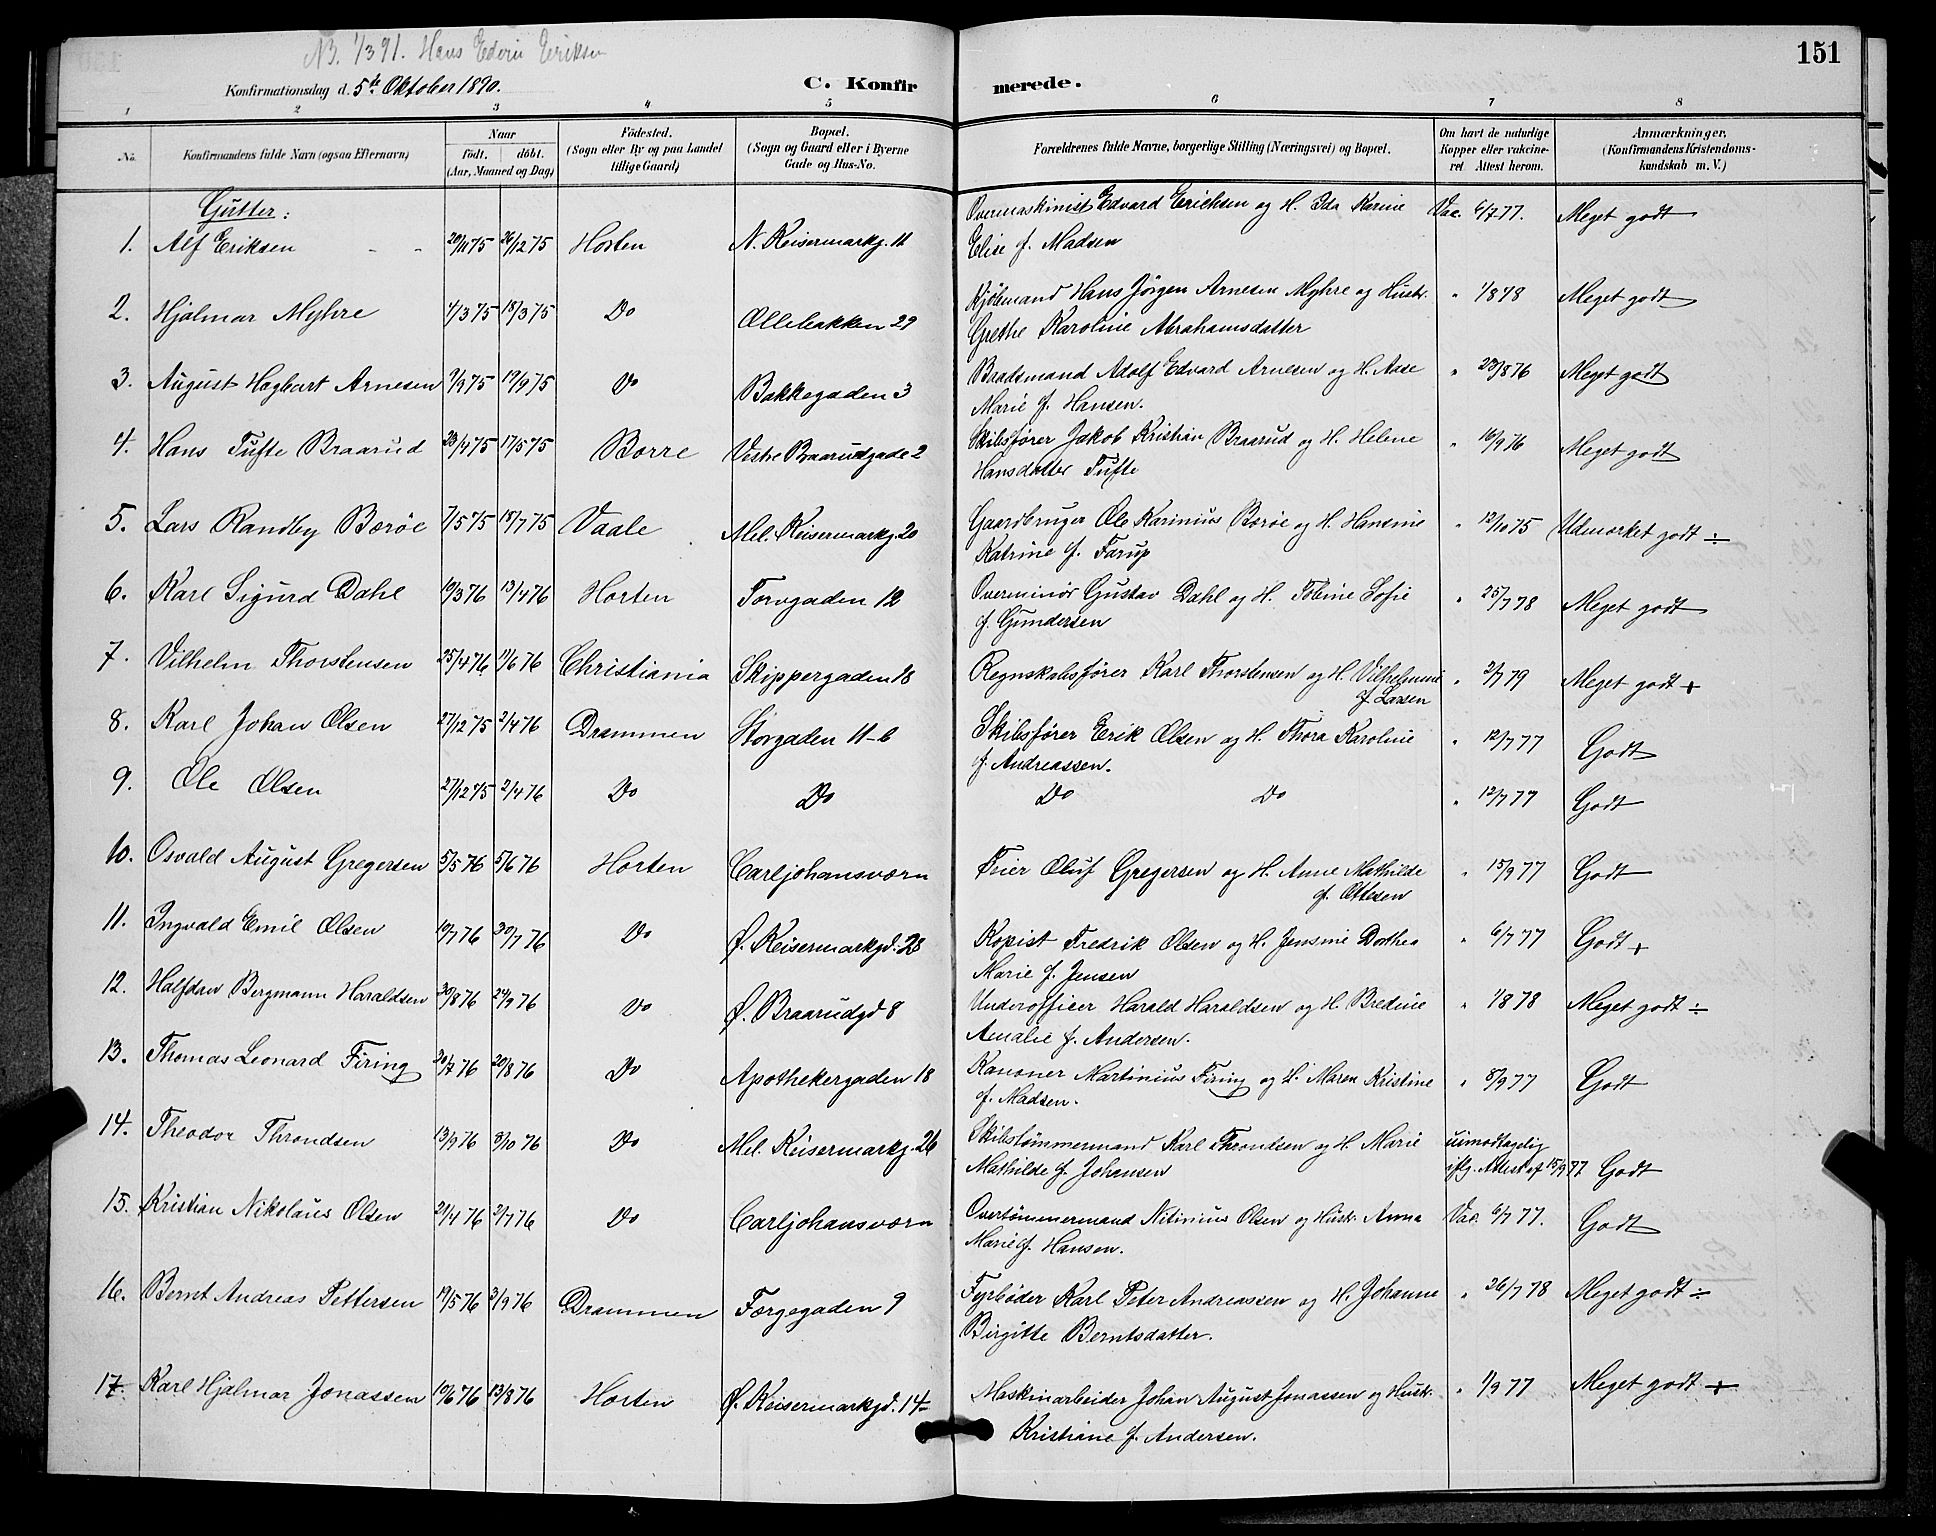 NB. 1/391. Hans Edvin Eriksen
151
Konfirmationsdag d. 5te Oktober 1890.
C. Konfirmerede.
1 2 3 4 5 6 7 8
No. | Konfirmandens fulde Navn (ogsaa Efternavn) | Naar født. døbt. (Aar, Maaned og Dag) | Fødested. (Sogn eller By og paa Landet tillige Gaard) | Bopæl. (Sogn og Gaard eller i Byerne Gade og Hus-No. | Forældrenes fulde Navne, borgerlige Stilling (Næringsvei) og Bopæl. | Om havt de naturlige Kopper eller vakcineret Attest herom. | Anmærkninger, (Konfirmandens Kristendomskundskab m. V.)
Gutter:
1. Alf Eriksen - - 20/11 75 26/12 75 Horten N. Keisermarkg. 11 Overmaskinist Edvard Erichsen og H. Ida Karine Vac. 6/7 77. Meget godt
Elise f. Madsen
2. Hjalmar Myhre 4/3 75 18/3 75 Do Ollebakken 29 Kjølmand Hans Jørgen Arnesen Myhre og Hustr. " 1/8 78 Meget godt
Grethe Karoline Abrahamsdatter
3. August Hagbart Arnesen 9/9 75 19/9 75 Do Bakkegaden 3 Baadsmand Adolf Edvard Arnesen og H. Aase " 23/8 76 Meget godt
Marie f. Hansen.
4. Hans Tufte Braarud 23/4 75 17/5 75 Borre Vestre Braarudgade 2 Skibsfører Jakob Kristian Braarud og H. Helene " 16/9 76 Meget godt
Hansdatter Tufte
5. Lars Randby Borøe 7/5 75 18/7 75 Vaale Mel. Keisermarkg. 20 Gaardbruger Ole Karinius Borøe og H. Hansine " 12/10 75 Udmærket godt ÷
Katrine f. Farup
6. Karl Sigurd Dahl 19/3 76 13/4 76 Horten Torvgaden 12 Overminør Gustav Dahl og H. Toline Sofie " 25/7 78 Meget godt
f. Gundersen
7. Vilhelm Thorstensen 25/4 76 11/6 76 Christiania Skippergaden 18 Regnskabsfører Karl Thorstensen og H. Vilhelmine " 2/7 79 Meget godt +
f. Larsen
8. Karl Johan Olsen 27/12 75 2/4 76 Drammen Storgaden 11-b Skibsfører Erik Olsen og H. Thora Karoline " 12/7 77 Godt
f. Andreassen.
9. Ole Olsen 27/12 75 2/4 76 Do Do Do Do " 12/7 77 Godt
10. Osvald August Gregersen 5/5 76 5/6 76 Horten Carljohansværn Frier Oluf Gregersen og H. Anne Mathilde " 15/9 77 Godt
f. Ottesen
11. Ingvald Emil Olsen 19/7 76 30/7 76 Do Ø. Keisermarkgd. 28 Kopist Fredrik Olsen og H. Jensine Dorthea " 6/7 77 Godt +
Marie f. Jensen
12. Halfdan Bergmann Haraldsen 30/8 76 24/9 76 Do Ø. Braarudgd 8 Underofficer Harald Haraldsen og H. Bredine " 1/8 78 Meget godt ÷
Amalie f. Andersen.
13. Thomas Leonard Firing 20/7 76 20/8 76 Do Apothekergaden 18 Kanoner Martinius Firing og H. Maren Kristine " 8/9 77 Godt
f. Madsen.
14. Theodor Throndsen 13/9 76 8/10 76 Do Mel. Keisermarkg. 26 Skibstømmermand Karl Throndsen og H. Marie uimodtagelig
Mathilde f. Johansen iflg. Attest af 15/9 77 Godt
15. Kristian Nikolaus Olsen 21/4 76 2/7 76 Do Carljohansværn Overtømmermand Nitinius Olsen og Hustr. Anna Vac. 6/7 77. Godt
Marie f. Hansen.
16. Bernt Andreas Pettersen 19/5 76 3/9 76 Drammen Færgegaden 9 Fyrbøder Karl Peter Andreassen og H. Johanne " 26/7 78 Meget godt ÷
Birgitte Berntsdatter.
17. Karl Hjalmar Jonassen 10/6 76 13/8 76 Horten Ø. Keisermarkgd. 14 Maskinarbeider Johan August Jonassen og Hustr. " 1/9 77 Meget godt +
Kristiane f. Andersen.